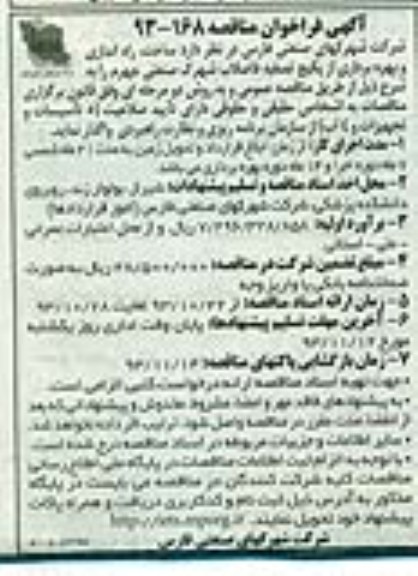 آگهی فراخوان مناقصه ۱۶۸-۹۳
شرکت شهرکهای صنعتی فارس در نظر دارد ساخت، راه اندازی
و بهره برداری از پکیج تصفیه فاضلاب شهرک صنعتی جهرم را به
شرح ذیل از طریق مناقصه عمومی و به روش دو مرحله ای وفق قانون برگزاری
مناقصات به اشخاص حقیقی و حقوقی دارای تأیید صلاحیت ۵ تأسیسات و
تجهیزات و یا آب از سازمان برنامه ریزی و نظارت راهبردی واگذار نماید.
۱- مدت اجرای کار: از زمان ابلاغ قرارداد و تحویل زمین به مدت
۲- محل اخذ اسناد مناقصه و تسلیم پیشنهادات: شیراز، بولوار زند، روبروی
دانشکده پزشکی، شرکت شهرکهای صنعتی فارس (امور قراردادها)
۳- برآورد اولیه: ریال و از محل اعتبارات عمرانی
- ملی - استانی
۴- مبلغ تضمین شرکت در مناقصه: ریال به صورت
ضمانتنامه بانکی یا واریز وجه
۵- زمان ارائه اسناد مناقصه: از لغایت
۶- آخرین مهلت تسلیم پیشنهادها: پایان وقت اداری روز یکشنبه
مورخ
۷- زمان بازگشایی پاکتهای مناقصه:
- جهت تهیه اسناد مناقصه ارائه درخواست کتبی الزامی است.
- به پیشنهادهای فاقد مهر و امضا، مشروط، مخدوش و پیشنهاداتی که بعد
از انقضا مدت مقرر در مناقصه واصل شود ترتیب اثر داده نخواهد شد.
- سایر اطلاعات و جزییات مربوطه در اسناد مناقصه درج شده است.
- با توجه به الزام ثبت اطلاعات مناقصات در پایگاه ملی اطلاع رسانی
مناقصات کلیه شرکت کنندگان در مناقصه می بایست در پایگاه
مذکور به آدرس ذیل ثبت نام و کد کاربری دریافت و همراه پاکات
پیشنهاد خود تحویل نمایند.
شرکت شهرکهای صنعتی فارس